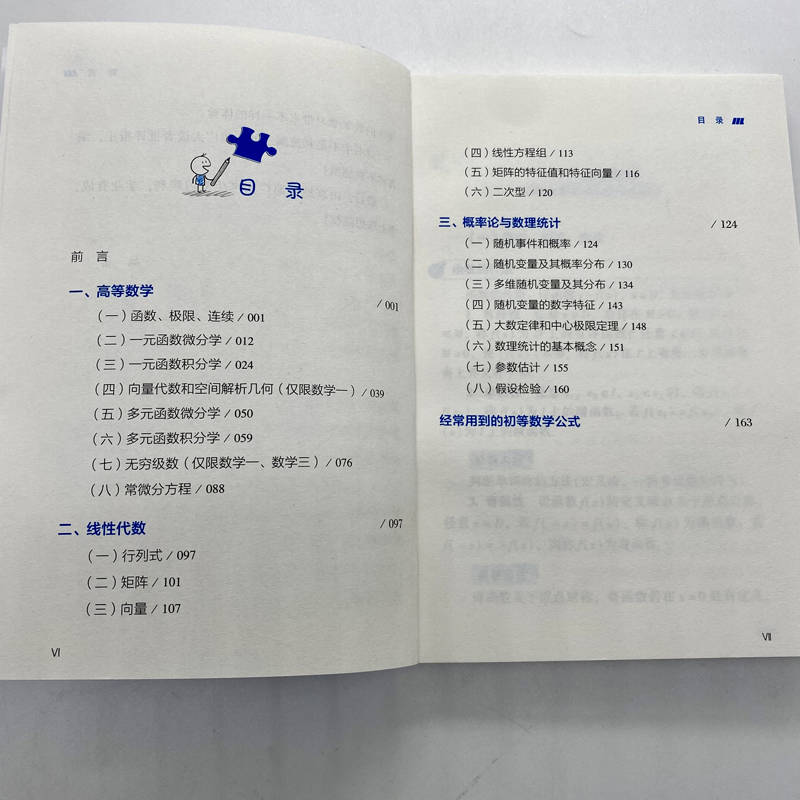 目 录
前 言
一、高等数学 / 001
（一）函数、极限、连续 / 001
（二）一元函数微分学 / 012
（三）一元函数积分学 / 024
（四）向量代数和空间解析几何（仅限数学一）/ 039
（五）多元函数微分学 / 050
（六）多元函数积分学 / 059
（七）无穷级数（仅限数学一、数学三）/ 076
（八）常微分方程 / 088
二、线性代数 / 097
（一）行列式 / 097
（二）矩阵 / 101
（三）向量 / 107
Ⅵ
目 录
（四）线性方程组 / 113
（五）矩阵的特征值和特征向量 / 116
（六）二次型 / 120
三、概率论与数理统计 / 124
（一）随机事件和概率 / 124
（二）随机变量及其概率分布 / 130
（三）多维随机变量及其分布 / 134
（四）随机变量的数字特征 / 143
（五）大数定律和中心极限定理 / 148
（六）数理统计的基本概念 / 151
（七）参数估计 / 155
（八）假设检验 / 160
经常用到的初等数学公式 / 163
Ⅶ